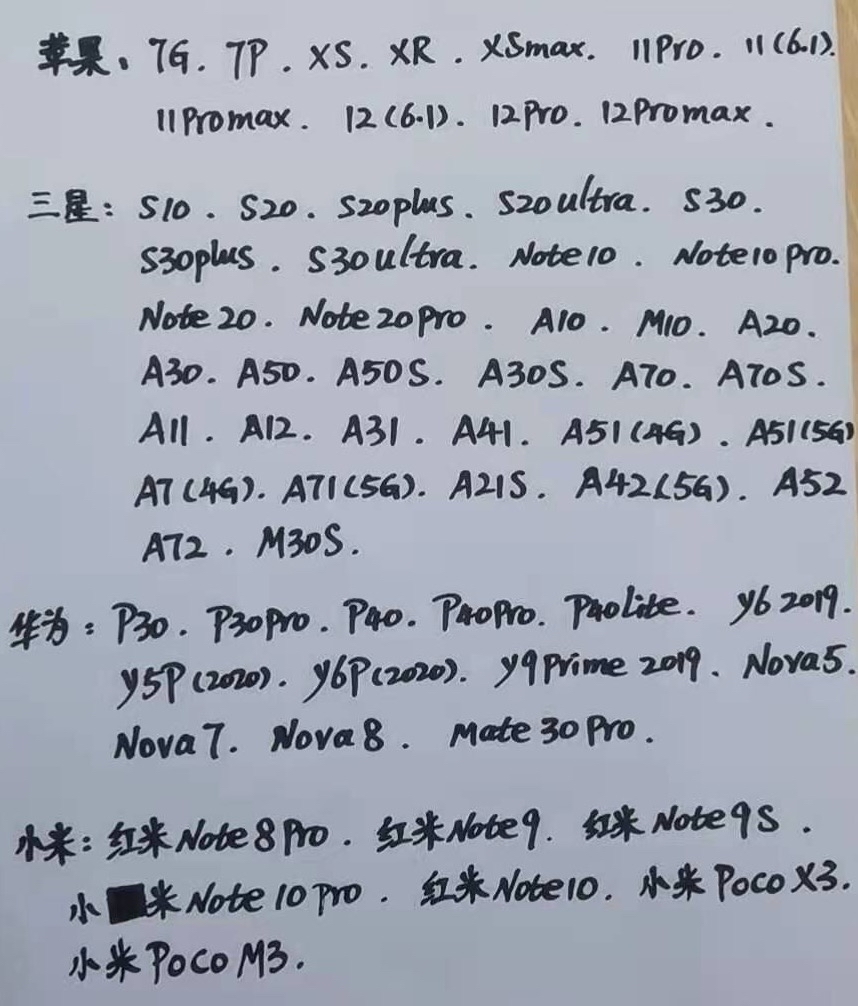 苹果、7G. 7P. XS. XR. XSmax. 11Pro. 11(6.1).
11Promax. 12(6.1). 12Pro. 12Promax.
三星: S10. S20. S20plus. S20ultra. S30.
S30plus. S30ultra. Note10. Note10 pro.
Note 20. Note 20pro. A10. M10. A20.
A30. A50. A50S. A30S. A70. A70S.
A11. A12. A31. A41. A51(4G). A51(5G)
A7(4G). A71(5G). A21S. A42(5G). A52
A72. M30S.
华为: P30. P30Pro. P40. P40Pro. P40Lite. y6 2019.
y5P(2020). y6P(2020). y9Prime 2019. Nova5.
Nova7. Nova8. Mate 30 Pro.
小米: 红米Note8Pro. 红米Note9. 红米Note9S.
小米Note 10 pro. 红米Note10. 小米Poco X3.
小米Poco M3.